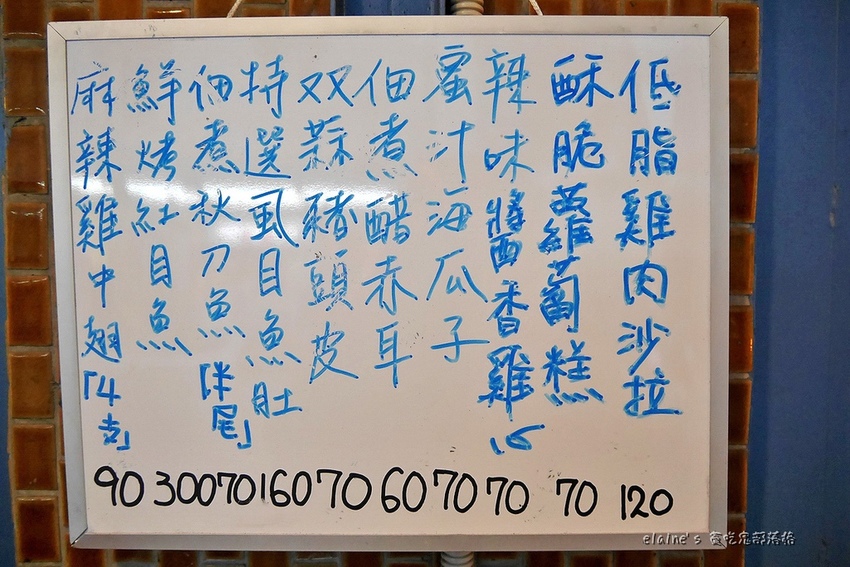 低脂雞肉沙拉 120
酥脆蘿蔔糕 70
辣味醬香雞心 70
蜜汁海瓜子 70
佃煮醋赤耳 60
双蒜豬頭皮 70
特選虱目魚肚 160
佃煮秋刀魚「半尾」 70
鮮烤紅目魚 300
麻辣雞中翅「4支」 90
elaine's 貪吃鬼部落格